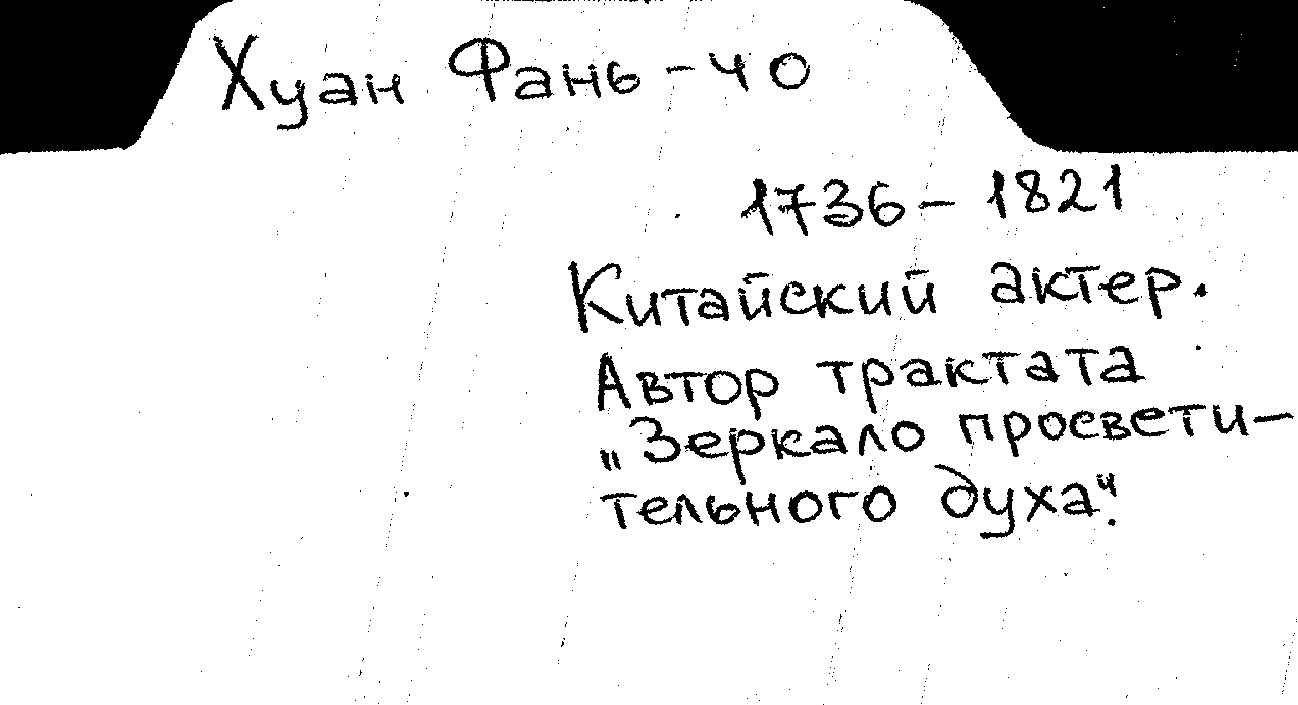 Хуан Фань-чо
1736 - 1821
Китайский актер.
Автор трактата
„Зеркало просвети-
тельного духа“.